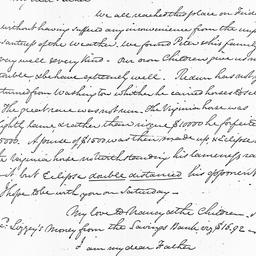 we all reached this place on Frida
without having suffered any inconvenience from the unp
leasantness of the weather. we found Peter & his family
very well every kind - Our own Children give us no
trouble & behave extremely well.
turned from Washington whither he carried horses to see
The great race was not run. the Virginia horse was
slightly lame, & rather than risque $10000 he forfeited
5000. A purse of $1500 was then made up & Eclipse
the Virginia horse notwithstanding his lameness ra
it but Eclipse double distanced his opponent
I hope to be with you on Saturday -
My love to Nancy & the Children.
Lizzy's Money from the Savings Bank is $15,92 -
I am my dear Father